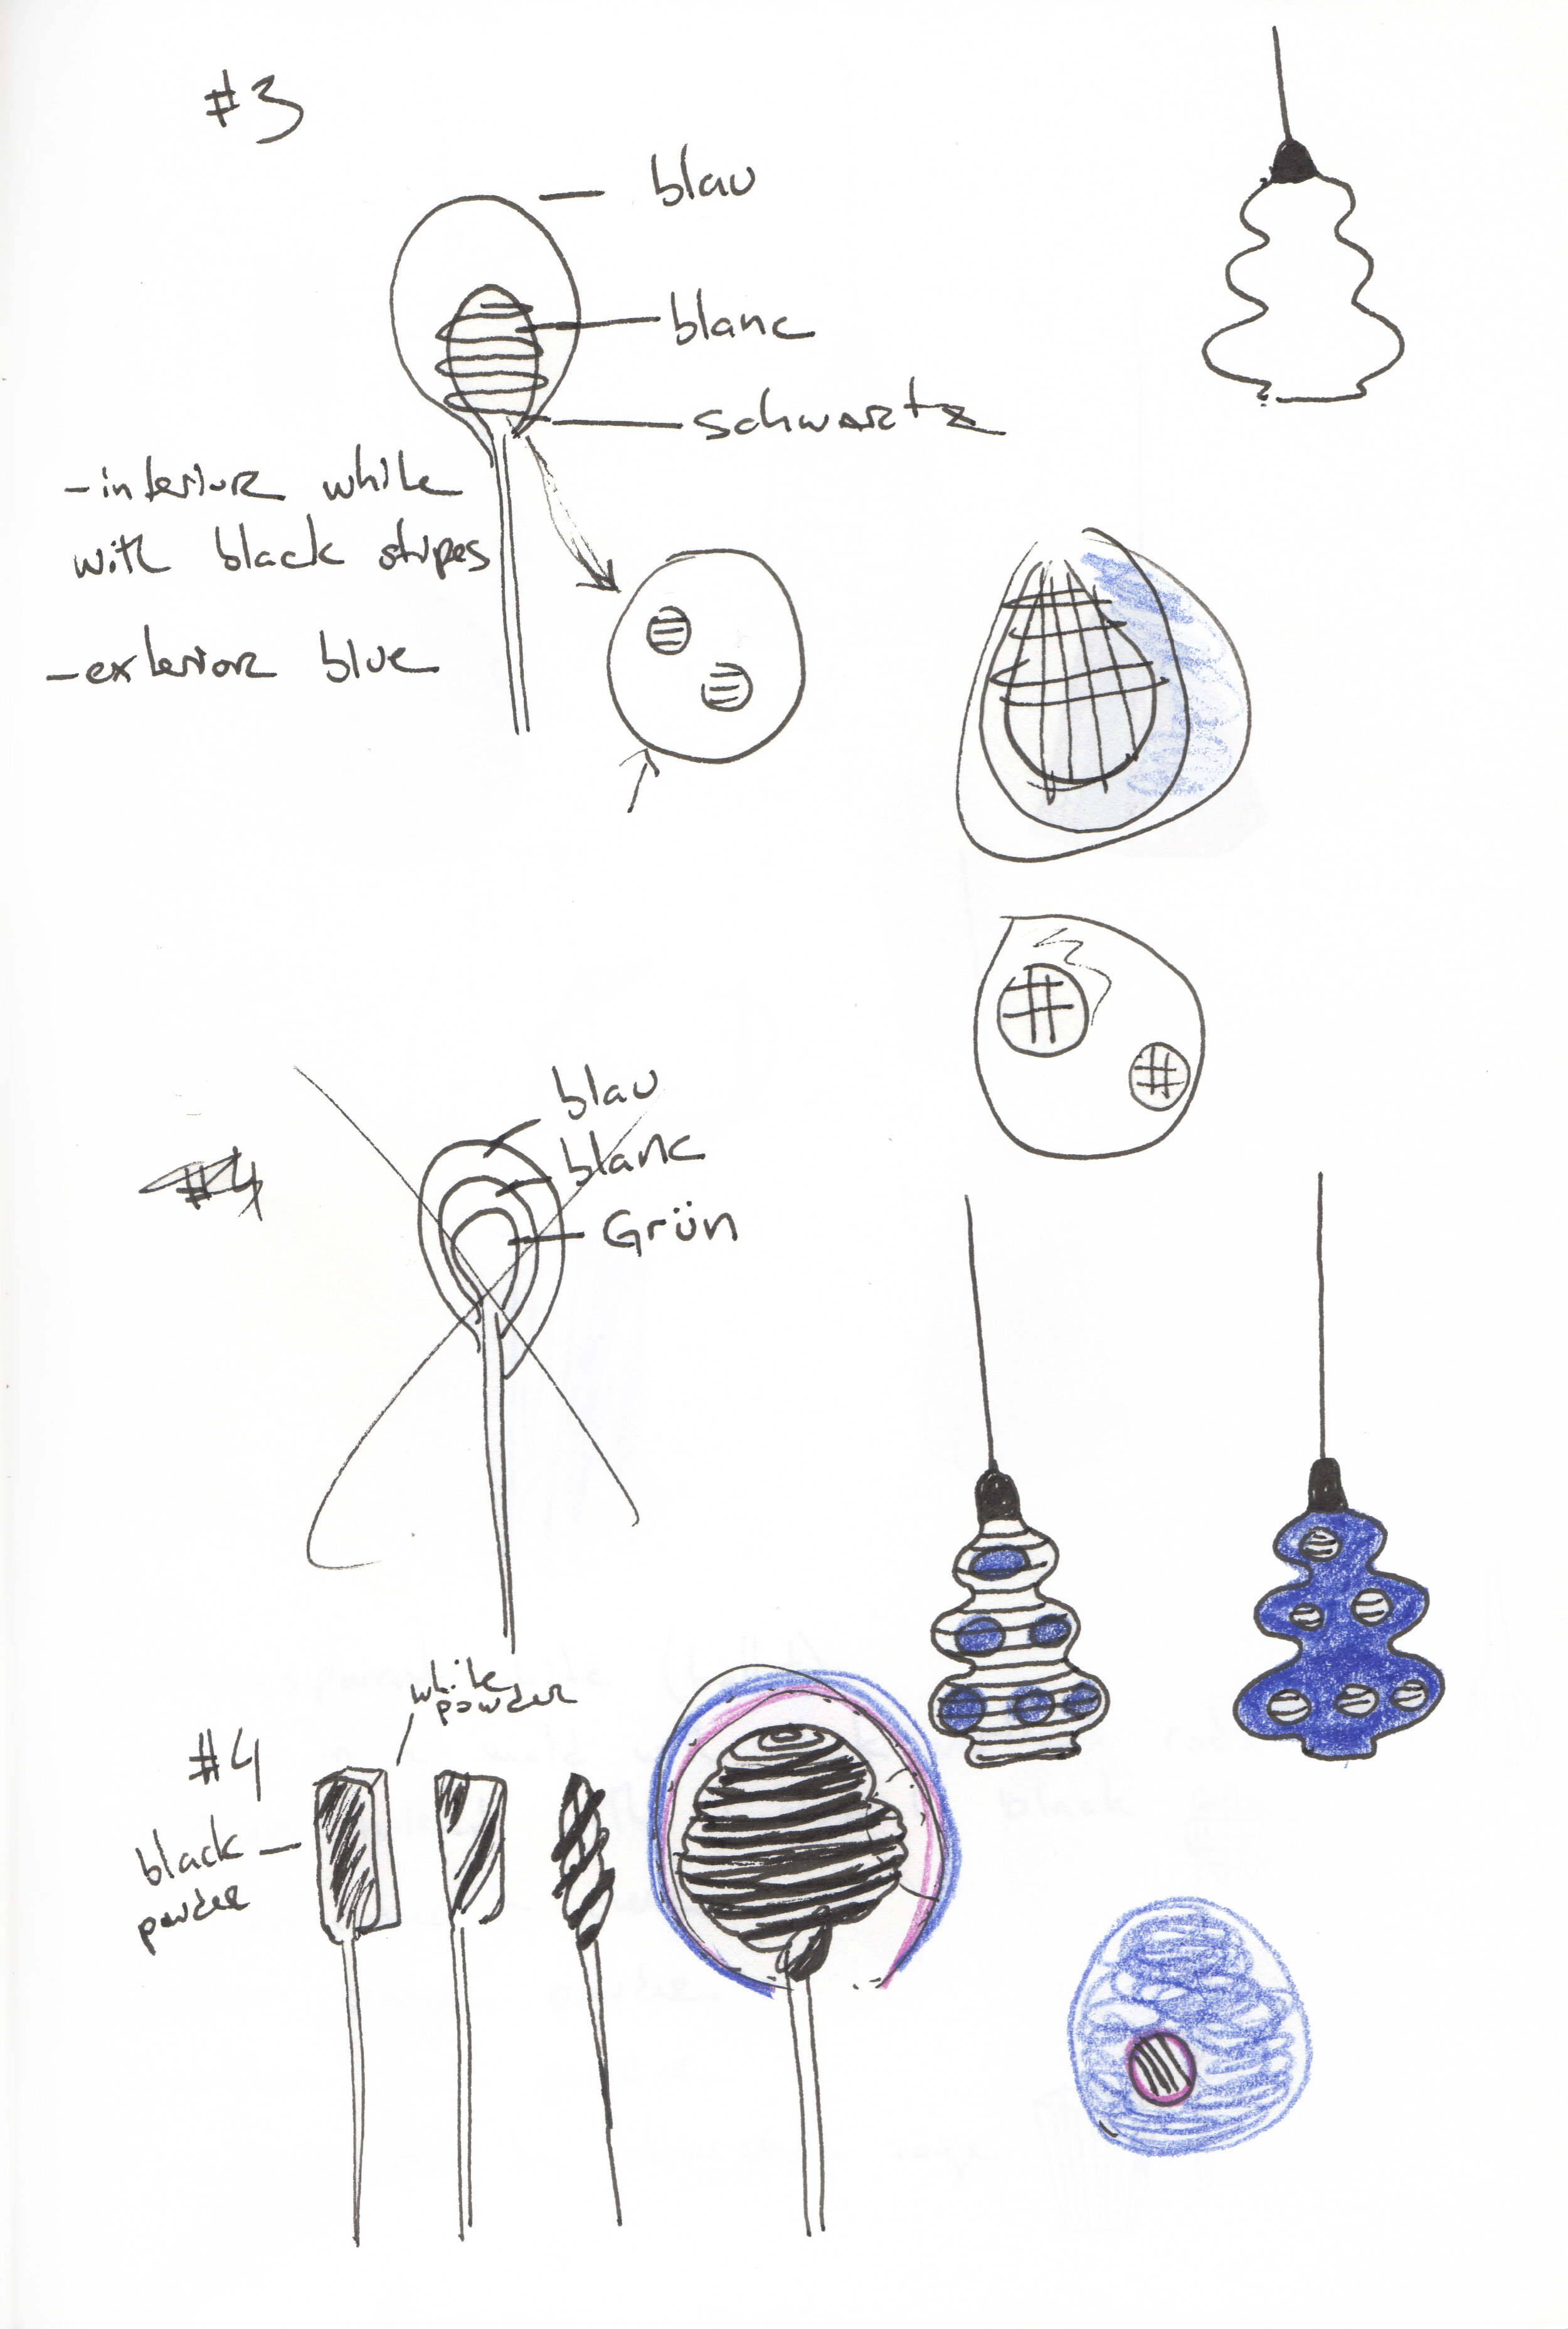 #3
blau
blanc
schwartz
-interior white
with black stripes
-exterior blue
blau
blanc
Grün
#4
white
powder
#4
black
powder